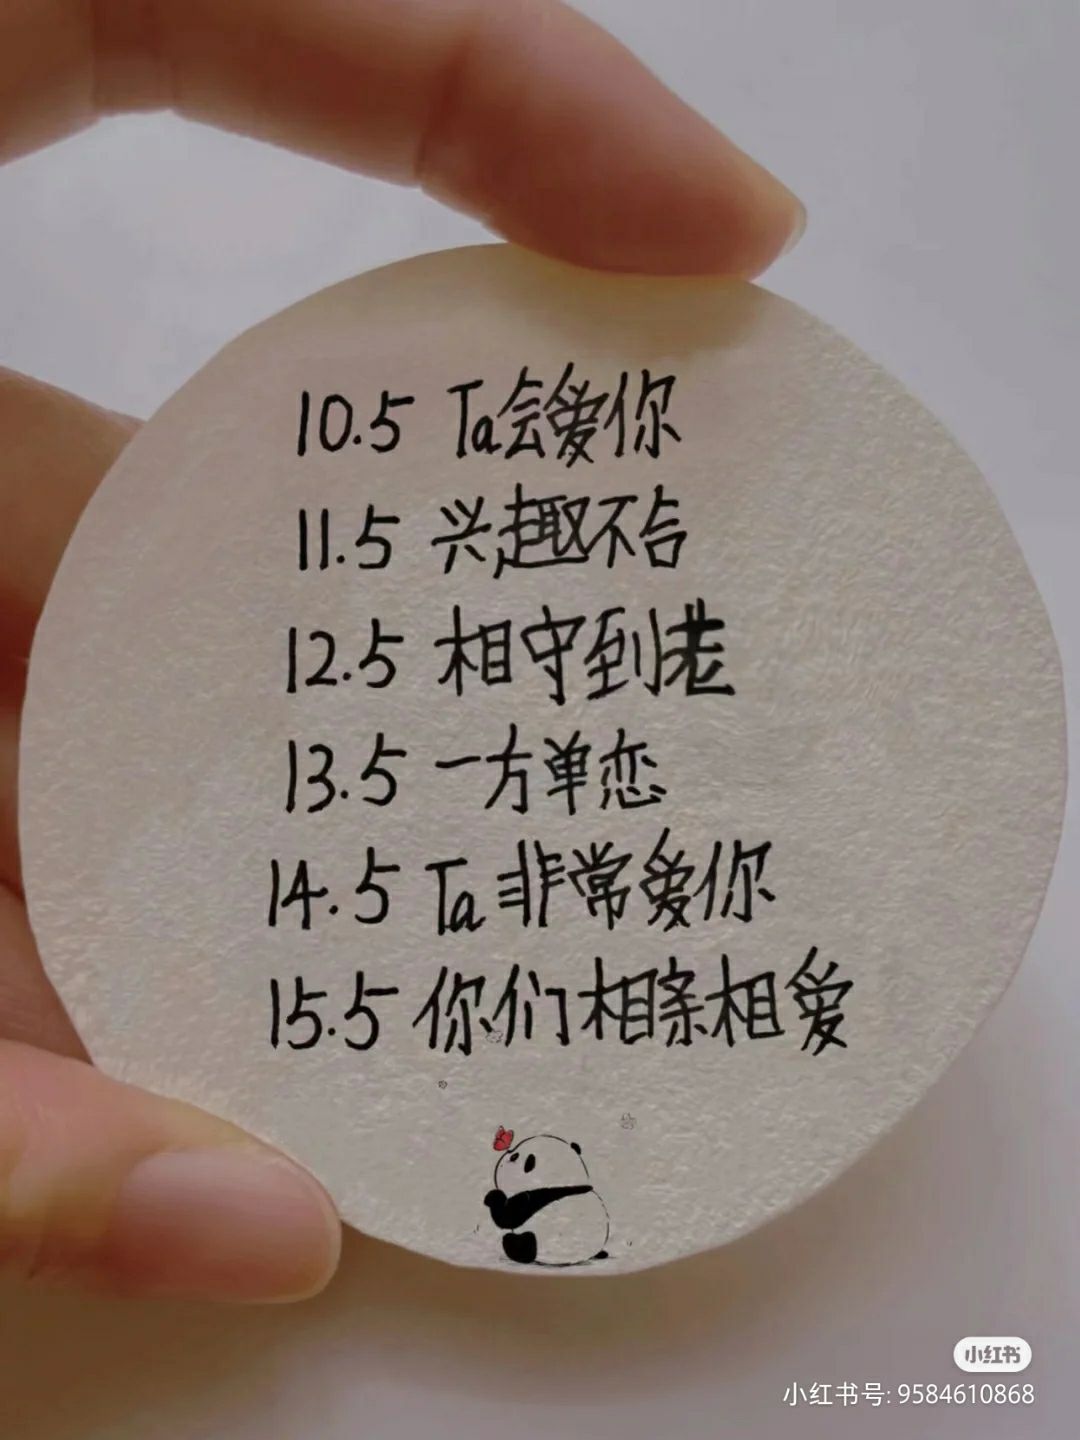 10.5 Ta会爱你
11.5 兴趣不合
12.5 相守到老
13.5 一方单恋
14.5 Ta 非常爱你
15.5 你们相亲相爱
小红书
小红书号: 9584610868